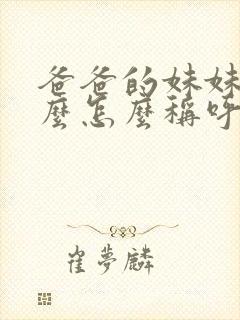 爸爸的妹妹
麼怎麼稱呼
崔夢麟